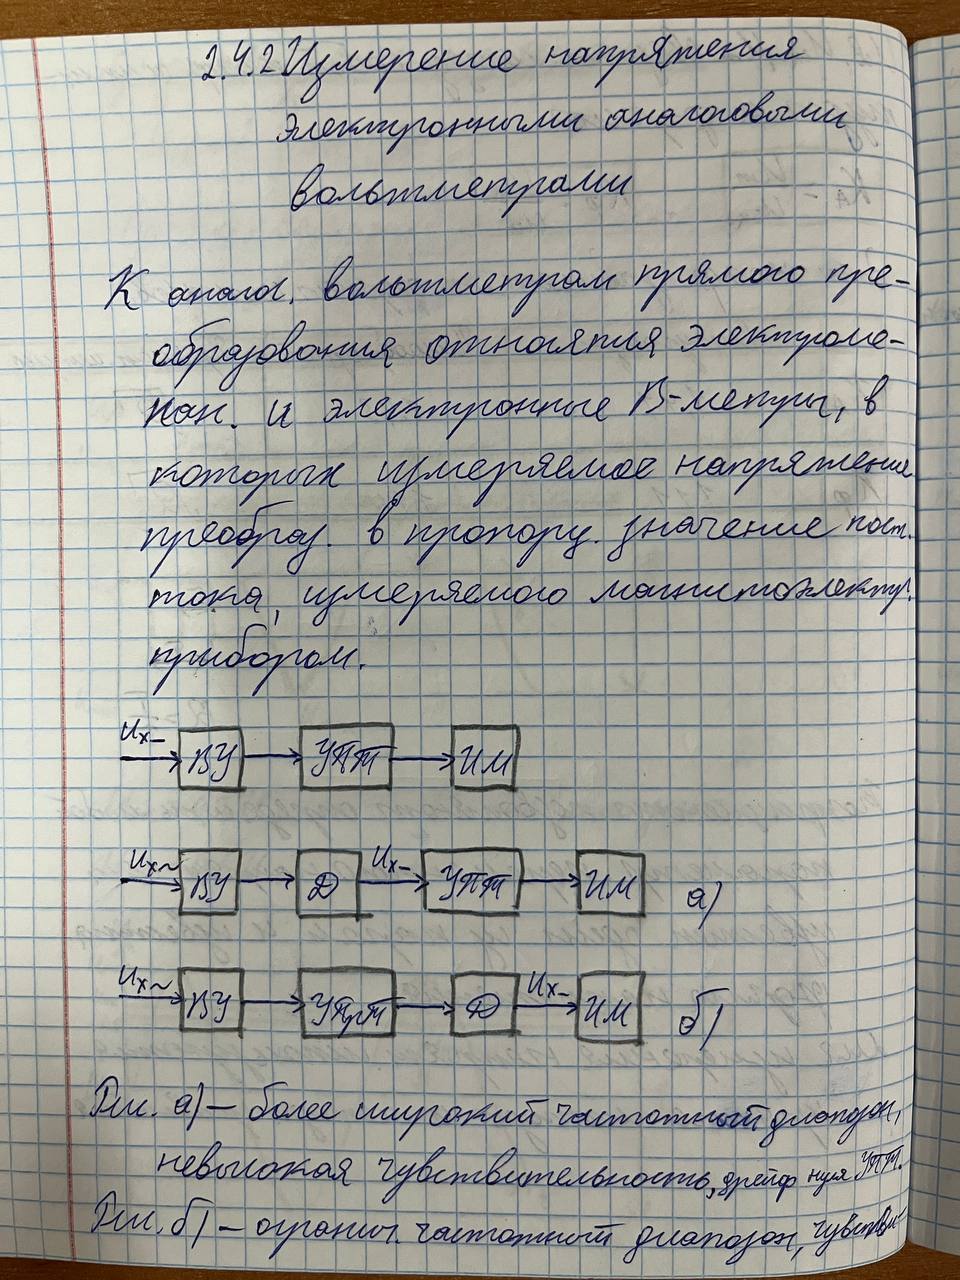 2.4.2 Измерение напряжения
электронными аналоговыми
вольтметрами
К аналог. вольтметрам прямого пре-
образования относятся электроме-
хан. и электронные В-метры, в
которых измеряемое напряжение
преобраз. в пропорц. значение пост.
тока, измеряемого магнитоэлектр.
прибором.
Uх– ВУ УПТ ИМ
Uх~ ВУ Д Uх– УПТ ИМ а)
Uх~ ВУ УПрТ Д Uх– ИМ б)
Рис. а) – более широкий частотный диапазон,
невысокая чувствительность, дрейф нуля УПТ.
Рис. б) – огранич. частотный диапазон, чувстви-